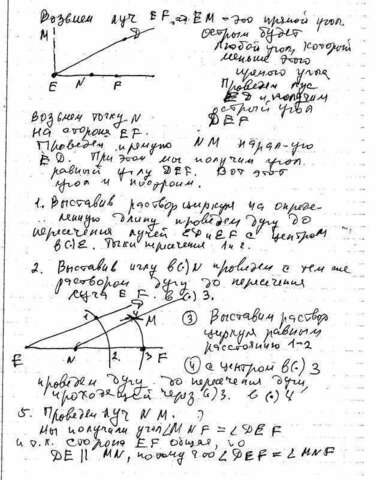 Возьмем луч EF, EM - это прямой угол.
M
D
острым будет
любой угол, который
меньше этого
прямого угла
E N F
Проведем луч
ED и получим
острый угол
DEF
Возьмем точку N
на стороне EF.
Проведем прямую NM парал-ую
ED. При этом мы получим угол
равный углу DEF. Вот этот
угол и построим.
1. Выставив раствор циркуля на опреде-
ленную длину проведем дугу до
пересечения лучей ED и EF с центром
в(.)E. Точки пересечения 1 и 2.
2. Выставив иглу в(.)N проведем с тем же
раствором дугу до пересечения
луча EF. в(.)3.
1 4 M
E N 2 3 F
③ Выставим раствор
циркуля равным
расстоянию 1-2
④ с центром в(.) 3
проведем дугу до пересечения дуги,
проходящей через (.)3. в(.)4,
5. Проведем луч NM.
Мы получили угол ∠MNF = ∠DEF
и т.к. сторона EF общая, то
DE || MN, потому что ∠DEF = ∠MNF